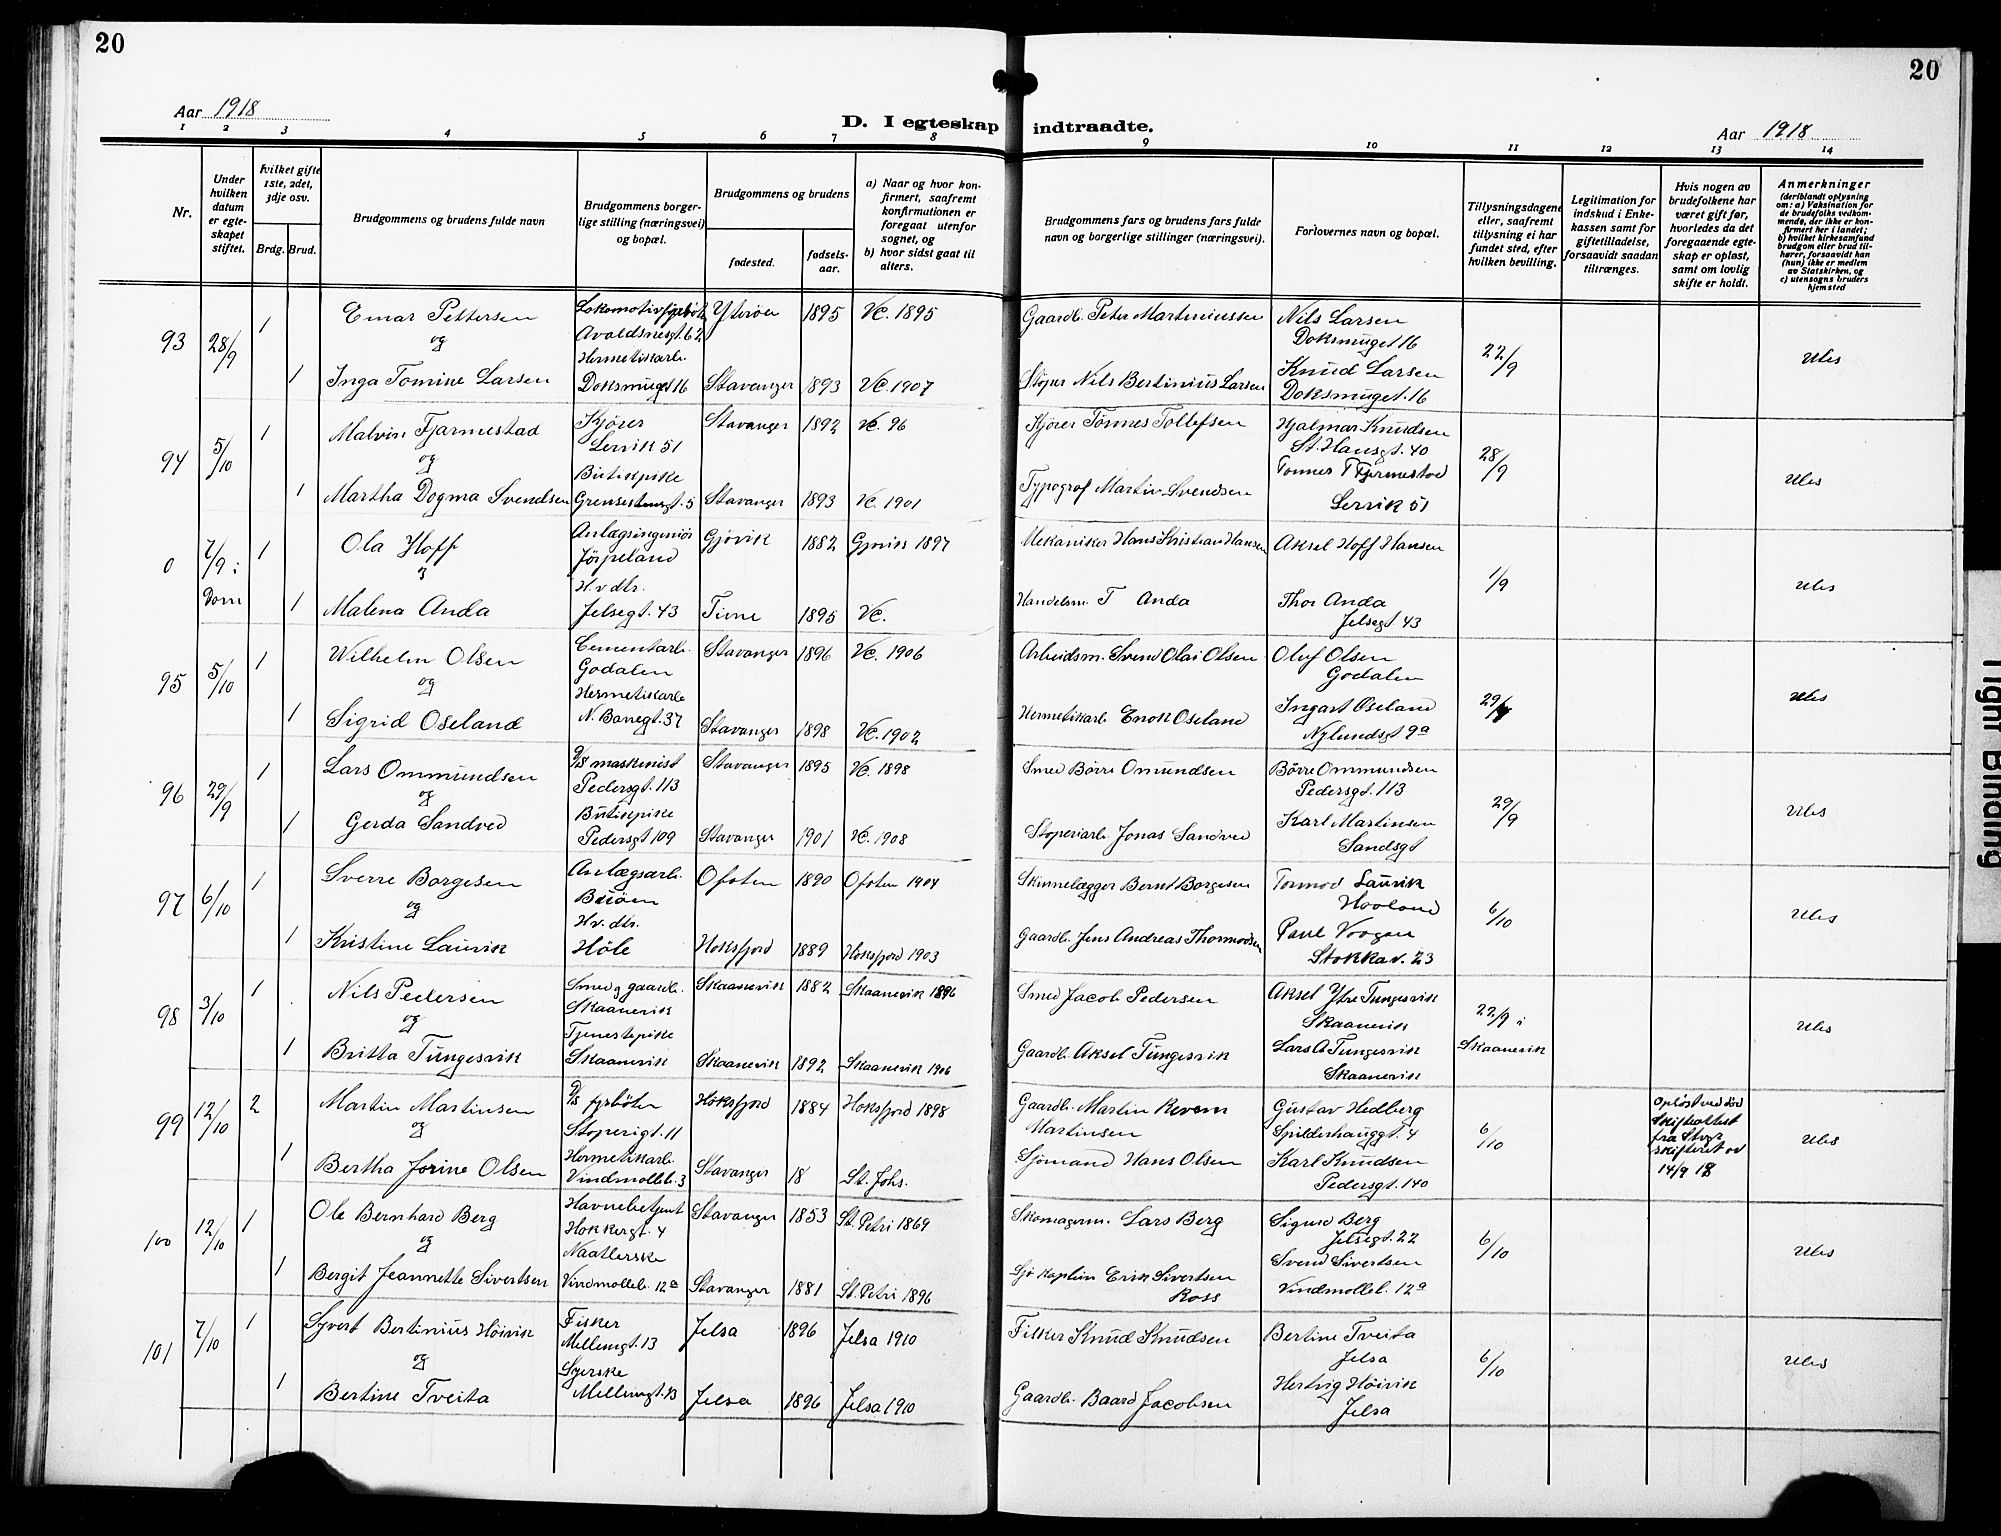 20
20
Aar 1918
D. I egteskap indtraadte.
Aar 1918
1 2 3 4 5 6 7 8 9 10 11 12 13 14
Nr.
Under hvilken datum er egteskapet stiftet.
hvilket gifte 1ste, 2det, 3dje osv.
Brdg. Brud.
Brudgommens og brudens fulde navn
Brudgommens borgerlige stilling (næringsvei) og bopæl.
Brudgommens og brudens
fødested.
fødselsaar.
a) Naar og hvor konfirmert, saafremt konfirmationen er foregaat utenfor sognet, og
b) hvor sidst gaat til alters.
Brudgommens fars og brudens fars fulde navn og borgerlige stillinger (næringsvei).
Forlovernes navn og bopæl.
Tillysningsdagene eller, saafremt tillysning ei har fundet sted, efter hvilken bevilling.
Legitimation for indskud i Enkekassen samt for giftetilladelse, forsaavidt saadan tiltrænges.
Hvis nogen av brudefolkene har været gift før, hvorledes da det foregaaende egteskap er opløst, samt om lovlig skifte er holdt.
Anmerkninger
(deriblandt oplysning om: a) Vaksination for de brudefolks vedkommende, der ikke er konfirmert her i landet; b) hvilket kirkesamfund brudgom eller brud tilhører, forsaavidt han (hun) ikke er medlem av Statskirken, og c) utensogns bruders hjemsted
93 28/9 1 Einar Pettersen Lokomotivfyrbøt. Avaldsnesgt. 62 Ytterøen 1895 Vc. 1895 Gaardb. Peter Martiniussen Nils Larsen Doksmuget 16 22/9 Ules
og
1 Inga Tomine Larsen Hermetikarb. Doksmuget 16 Stavanger 1893 Vc. 1907 Støper Nils Bertinius Larsen Knud Larsen Doksmuget 16
94 5/10 1 Malvin Fjermestad Kjører Lervik 51 Stavanger 1892 Vc. 96 Kjører Tønnes Tollefsen Hjalmar Knudsen St. Hansgt. 40 28/9 Ules
og
1 Martha Dogma Svendsen Butikpike Stavanger 1893 Vc. 1901 Typograf Martin Svendsen Tønnes T Fjermestad Lervik 51
0 7/9 i Dom 1 Ola Hoff Anlægsingeniør Jørpeland Gjøvik 1882 Gjøvik 1897 Mekaniker Hans Kristian Hansen Aksel Hoff Hansen 1/9 Ules
1 Malena Anda H.v. dtr. Jelsegt. 43 Time 1895 Vc. Handelsm. T Anda Thor Anda Jelsegt 43
95 5/10 1 Wilhelm Olsen Cementarb. Godalen Stavanger 1896 Vc. 1906 Arbeidsm. Svend Olai Olsen Oluf Olsen Godalen 29/9 Ules
og
1 Sigrid Oseland Hermetikarb N. Banegt. 37 Stavanger 1898 Vc. 1902 Hermetikarb. Enok Oseland Ingart Oseland Nylundsgt 9a
96 29/9 1 Lars Ommundsen D/S maskinist Pedersgt. 113 Stavanger 1895 Vc. 1898 Smed Børre Omundsen Børre Ommundsen Pedersgt. 113 29/9 Ules
og
1 Gerda Sandved Butikpike Pedersgt 109 Stavanger 1901 Vc. 1908 Støperiarb. Jonas Sandved Karl Martinsen Sandsgt
97 6/10 1 Sverre Borgesen Anlægsarb. Buøen Ofoten 1890 Ofoten 1904 Skinnelægger Bernt Borgesen Tormod Laurik Haaland 6/10 Ules
og
1 Kristine Laurik H.v. dtr. Høle Høksfjord 1889 Høksfjord 1903 Gaardb. Jens Andreas Thormodsen Paul Vaagen Stokkav. 23
98 3/10 1 Nils Pedersen Smed g gaardb. Skaanevik Skaanevik 1882 Skaanevik 1896 Smed Jacob Pedersen Aksel Ytre Tungesvik Skaanevik 22/9 i Skaanevik Ules
og
1 Britta Tungesvik Tjenestepike Skaanevik Skaanevik 1892 Skaanevik 1906 Gaardb. Aksel Tungesvik Lars A Tungesvik Skaanevik
99 12/10 2 Martin Martinsen D/S fyrbøter Støperigt. 11 Høksfjord 1884 Høksfjord 1898 Gaardb. Martin Revem Martinsen Gustav Hedberg Spilderhauggt. 4 6/10 Opløst ved død skifteattest fra Stvgr skifteret av 14/9 18 Ules
og
1 Bertha Jorine Olsen Hermetikarb. Vindmølleb. 3 Stavanger 18 St. Johs. Sjømand Hans Olsen Karl Knudsen Pedersgt. 140
100 12/10 1 Ole Bernhard Berg Havnebetjent Hokkergt. 4 Stavanger 1853 St. Petri 1869 Skomagerm. Lars Berg Sigurd Berg Jelsegt. 22 6/10 Ules
og
1 Bergit Jeannette Sivertsen Naatlerske Vindmølleb. 12a Stavanger 1881 St. Petri 1896 Sjøkaptein Erik Sivertsen Ross Svend Sivertsen Vindmølleb. 12a
101 7/10 1 Syvert Bertinius Høivik Fisker Mellemgt. 13 Jelsa 1896 Jelsa 1910 Fisker Knud Knudsen Bertine Tveita Jelsa 6/10 Ules
og
1 Bertine Tveita Syerske Mellemgt. 13 Jelsa 1896 Jelsa 1910 Gaardb. Baard Jacobsen Hertvig Høivik Jelsa
Tight Binding